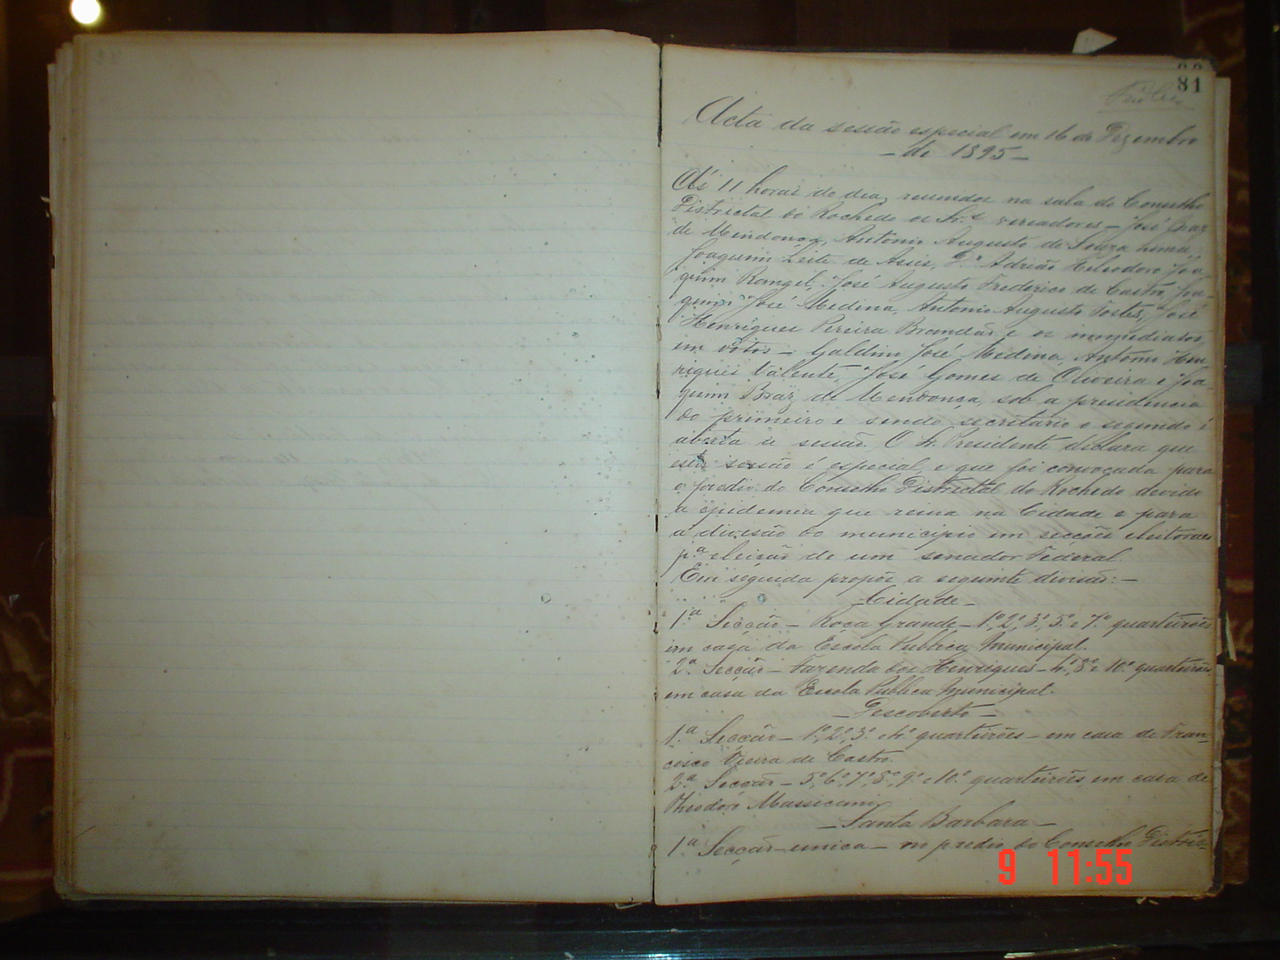 81
Acta da sessão especial em 16 de Dezembro
- de 1895 -
Ás 11 horas do dia, reunidos na sala do Conselho
Districtal do Rochedo os Srs. vereadores - José Braz
de Mendonça, Antonio Augusto de Souza Lima,
Joaquim Leite de Assis, Dr. Adrião Heliodoro Joa-
quim Rangel, José Augusto Frederico de Castro, Joa-
quim José Medina, Antonio Augusto Tostes, José
Henriques Pereira Brandão e os immediatos
em votos - Galdino José Medina, Antonio Hen-
riques Valente, José Gomes de Oliveira e Joa-
quim Braz de Mendonça, sob a presidencia
do primeiro e sendo secretario o segundo é
aberta a sessão. O Sr. Presidente declara que
esta sessão é especial, e que foi convocada para
o predio do Conselho Districtal do Rochedo devido
a epidemia que reina na Cidade e para
a divisão do municipio em secções eleitoraes
pa. eleição de um senador Federal.
Em seguida propõe a seguinte divisão: -
- Cidade -
1ª Secção - Roça Grande - 1º, 2º, 3º, 5º e 7º quarteirões
em casa da Escola Publica Municipal.
2ª Secção - Fazenda dos Henriques - 4º, 8º e 10º quarteirões
em casa da Escola Publica Municipal.
- Descoberto -
1ª Secção - 1º, 2º, 3º e 4º quarteirões - em casa de Fran-
cisco Vieira de Castro.
2ª Secção - 5º, 6º, 7º, 8º, 9º e 10º quarteirões em casa de
Theodoro
- Santa Barbara -
1ª Secção unica - no predio do Conselho Distric-
9 11:55